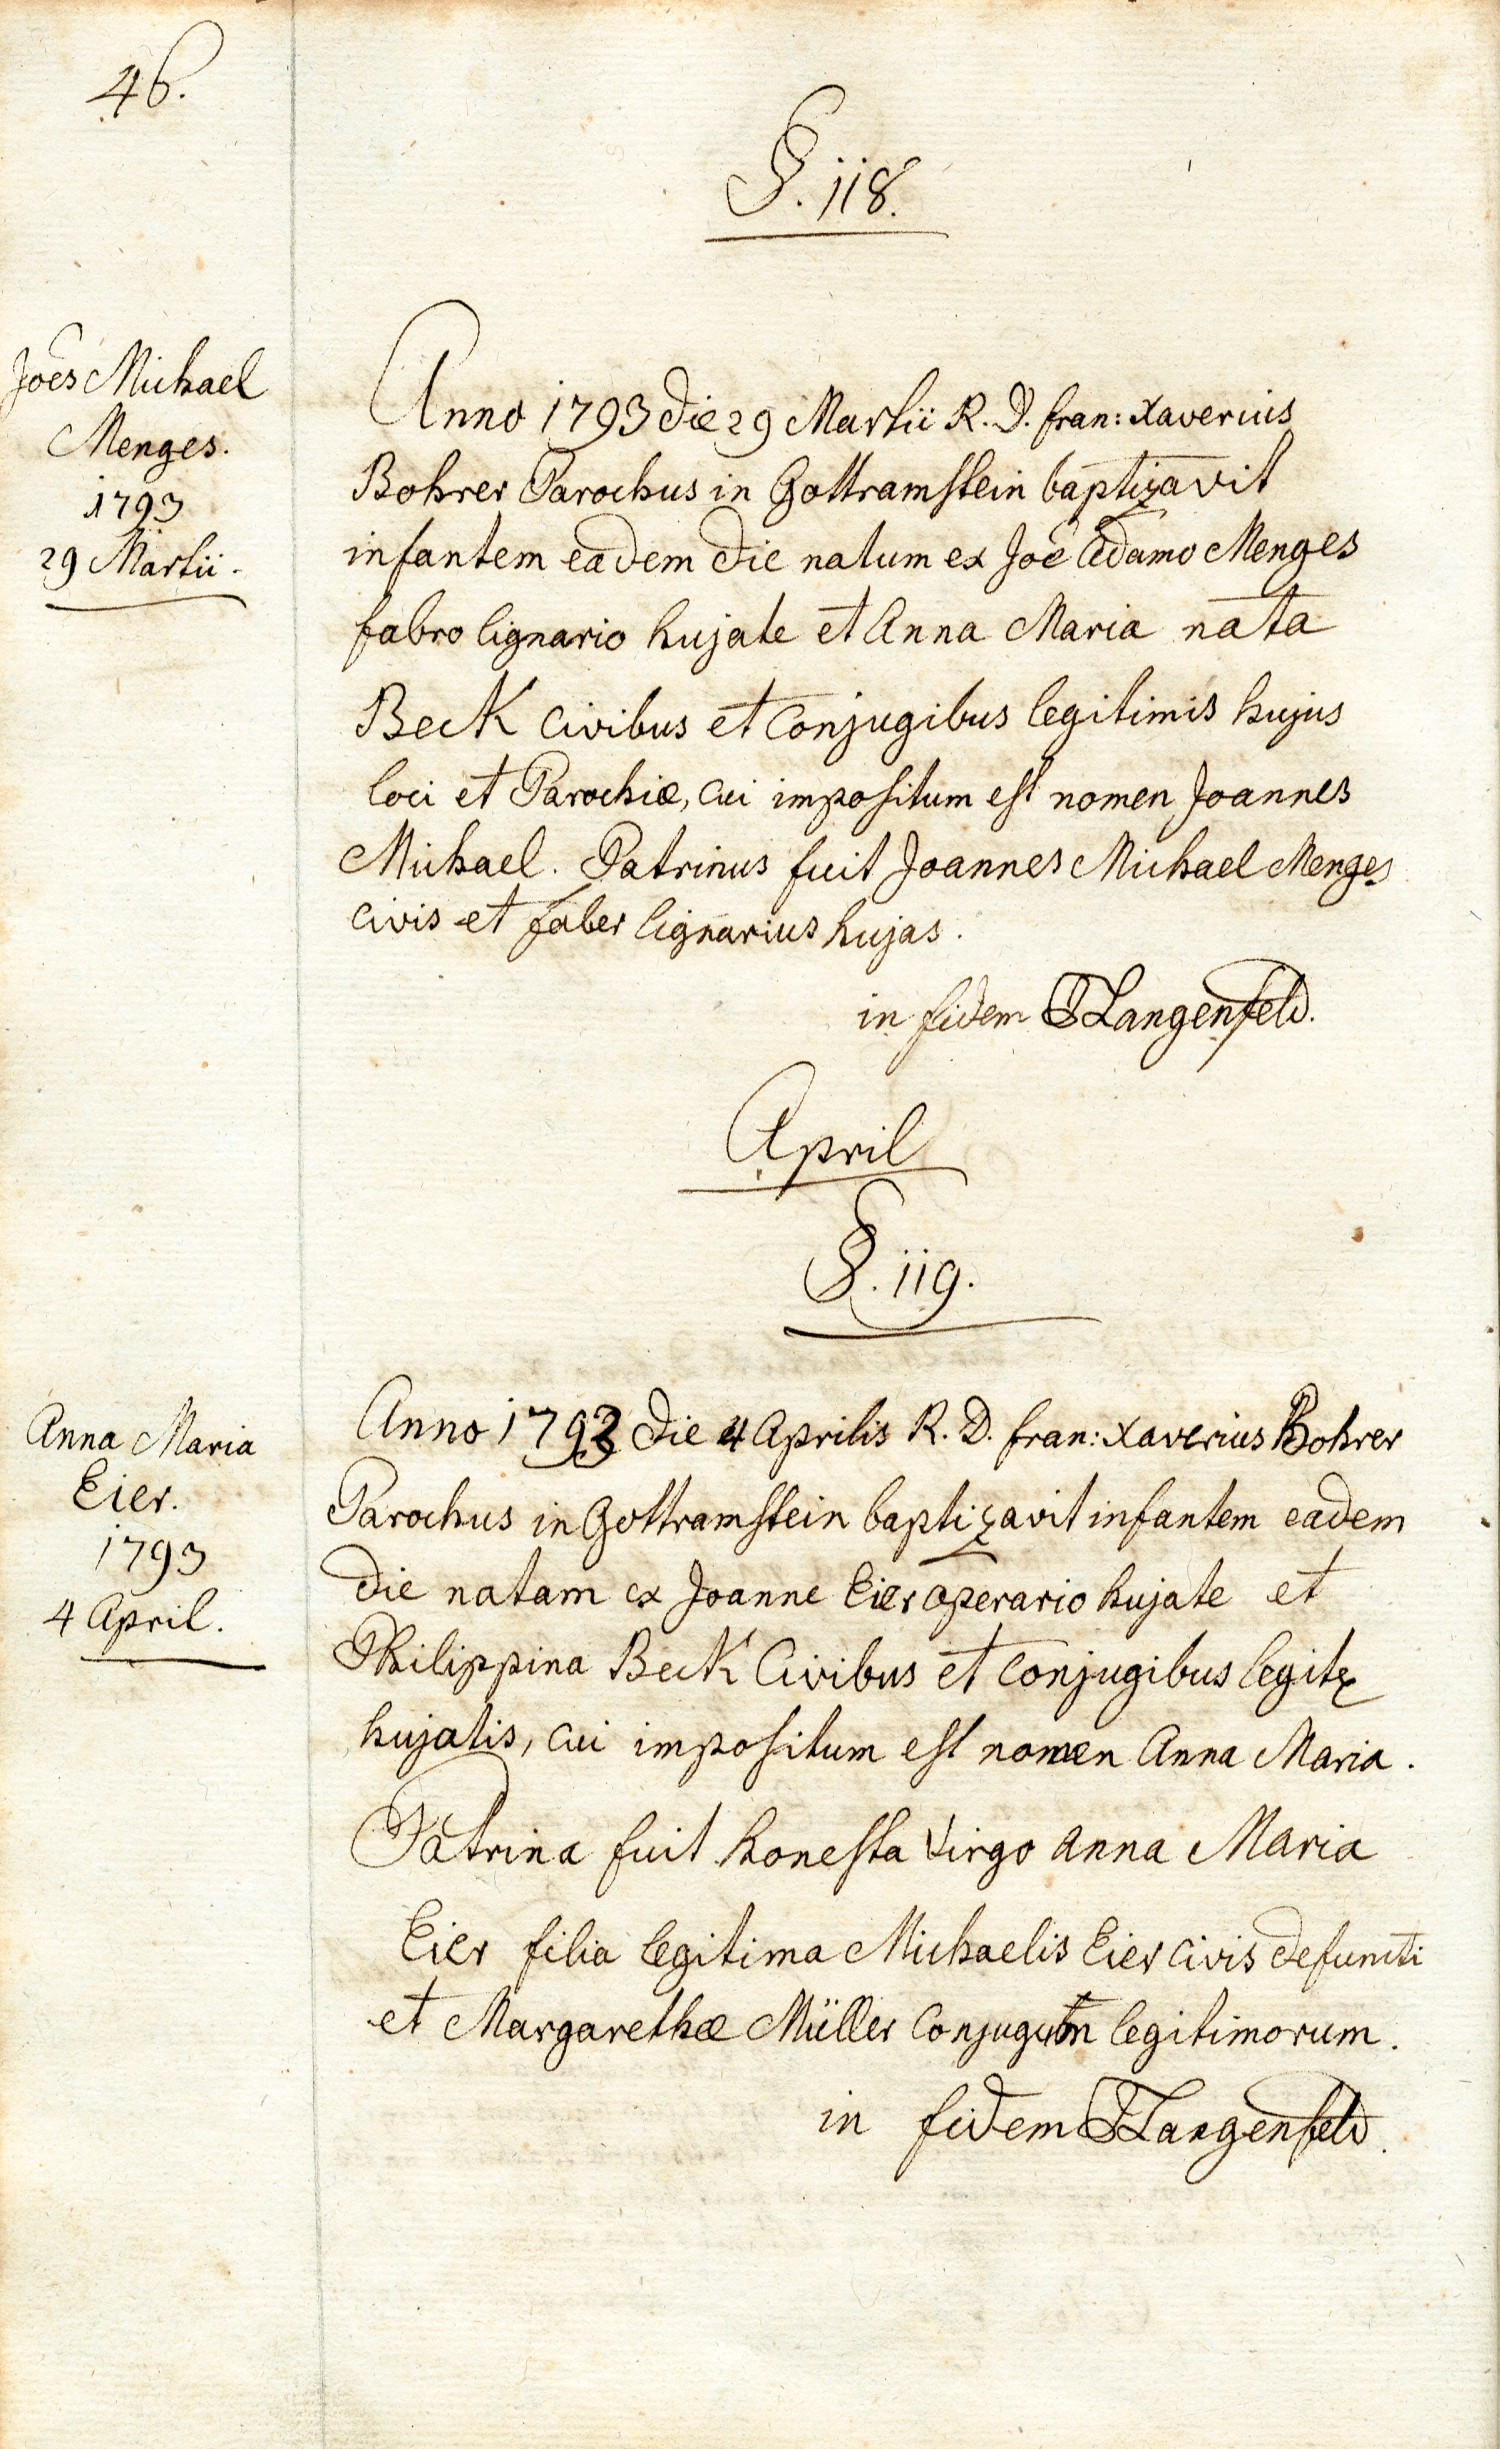 46.
§. 118.
Joēs Michael
Menges.
1793
29 Martii.
Anno 1793 die 29 Martii R. D. fran: Xaverius
Bohrer Parochus in Gottramstein baptizavit
infantem eadem die natum ex Joē Adamo Menges
fabro lignario hujate et Anna Maria nata
Beck civibus et conjugibus legitimis hujus
loci et Parochiæ, cui impositum est nomen Joannes
Michael. Patrinus fuit Joannes Michael Menges
civis et faber lignarius hujas.
in fidem Langenfeld.
April
§. 119.
Anna Maria
Eier.
1793
4 April.
Anno 1793 die 4 Aprilis R. D. fran: Xaverius Bohrer
Parochus in Gottramstein baptizavit infantem eadem
die natam ex Joanne Eier operario hujate et
Philippina Beck Civibus et conjugibus legit
hujatis, cui impositum est nomen Anna Maria.
Patrina fuit honesta virgo Anna Maria
Eier filia legitima Michaelis Eier civis defuncti
et Margarethæ Müller conjugum legitimorum.
in fidem Langenfeld